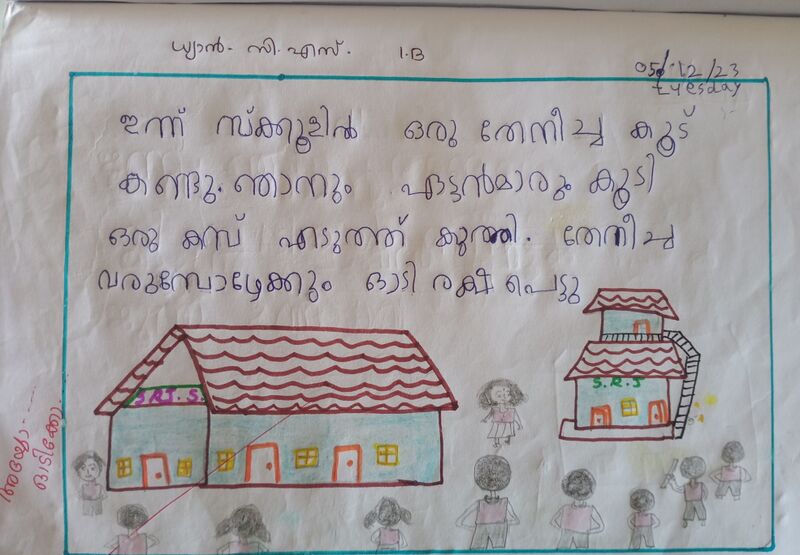 ധ്യാൻ. സി.എസ്. 1.B
05/12/23
tuesday
ഇന്ന് സ്ക്കൂളിൽ ഒരു തേനീച്ച കൂട്
കണ്ടു. ഞാനും ഏട്ടൻമാരും കൂടി
ഒരു കമ്പ് എടുത്ത് കുത്തി. തേനീച്ച
വരുമ്പോഴേക്കും ഓടി രക്ഷ പെട്ടു
S.R.J
S.RJ.S.
അയ്യോ......
ഓടിക്കോ.